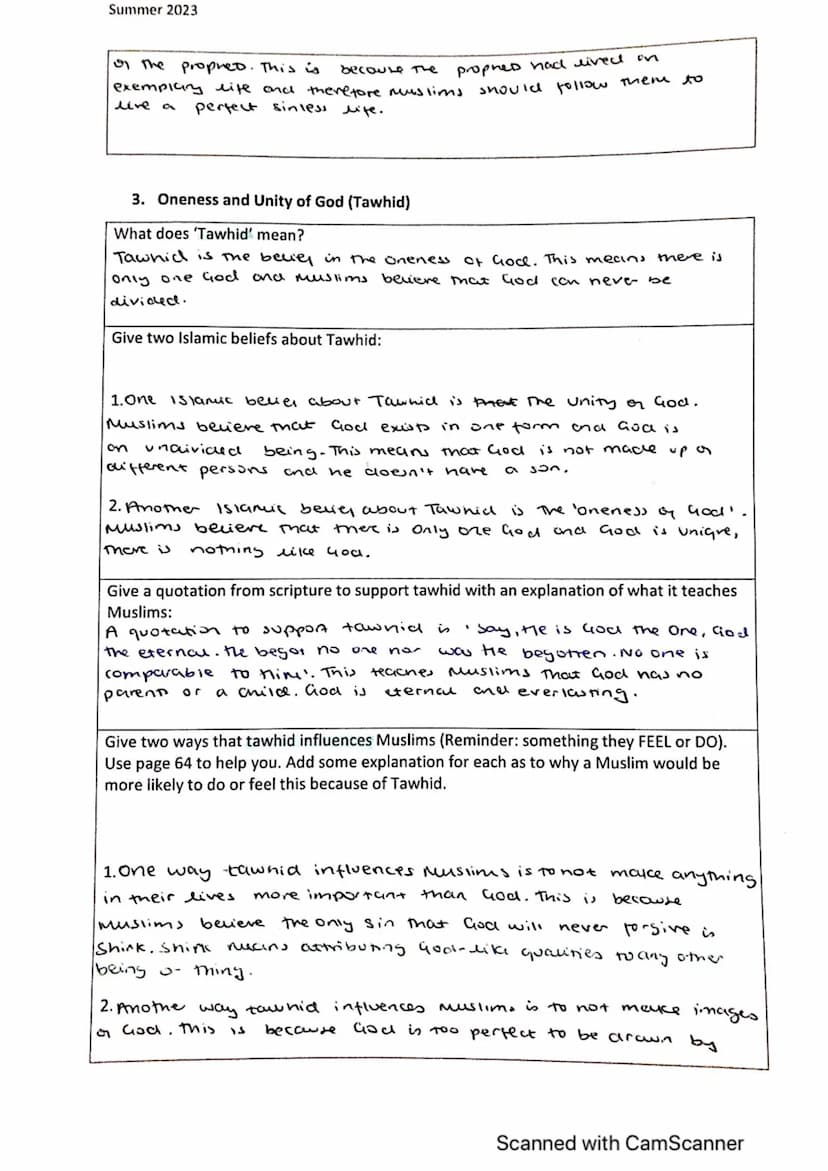 Summer 2023
of the prophets. This is because the prophets had lived an
exemplary life and therefore Muslims should follow them to
live a perfect sinless life.
3. Oneness and Unity of God (Tawhid)
What does 'Tawhid' mean?
Tawhid is the belief in the oneness of God. This means there is
only one God and Muslims believe that God can never be
divided.
Give two Islamic beliefs about Tawhid:
1.One Islamic belief about Tawhid is that the unity of God.
Muslims believe that God exists in one form and God is
an undivided being. This means that God is not made up of
different persons and he doesn't have a son.
2. Another Islamic belief about Tawhid is the 'oneness of God'.
Muslims believe that there is only one God and God is unique,
there is nothing like God.
Give a quotation from scripture to support tawhid with an explanation of what it teaches
Muslims:
A quotation to support tawhid is 'Say, He is God the One, God
the eternal. He begot no one nor was He begotten. No one is
comparable to him'. This teaches Muslims that God has no
parent or a child. God is eternal and everlasting.
Give two ways that tawhid influences Muslims (Reminder: something they FEEL or DO).
Use page 64 to help you. Add some explanation for each as to why a Muslim would be
more likely to do or feel this because of Tawhid.
1.One way tawhid influences Muslims is to not make anything
in their lives more important than God. This is because
Muslims believe the only sin that God will never forgive is
Shirk. Shirk means attributing God-like qualities to any other
being or thing.
2. Another way tawhid influences Muslims is to not make images
of God. This is because God is too perfect to be drawn by
Scanned with CamScanner